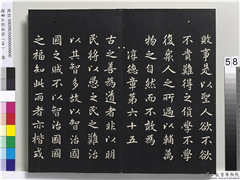 敗事是以聖人欲不欲
不貴難得之貨學不學
復衆人之所過以輔萬
物之自然而不敢為
淳德章第六十五
古之善為道者非以明
民將以愚之民之難治
以其智多故以智治國
國之賊不以智治國國
之福知此兩者亦楷式
58